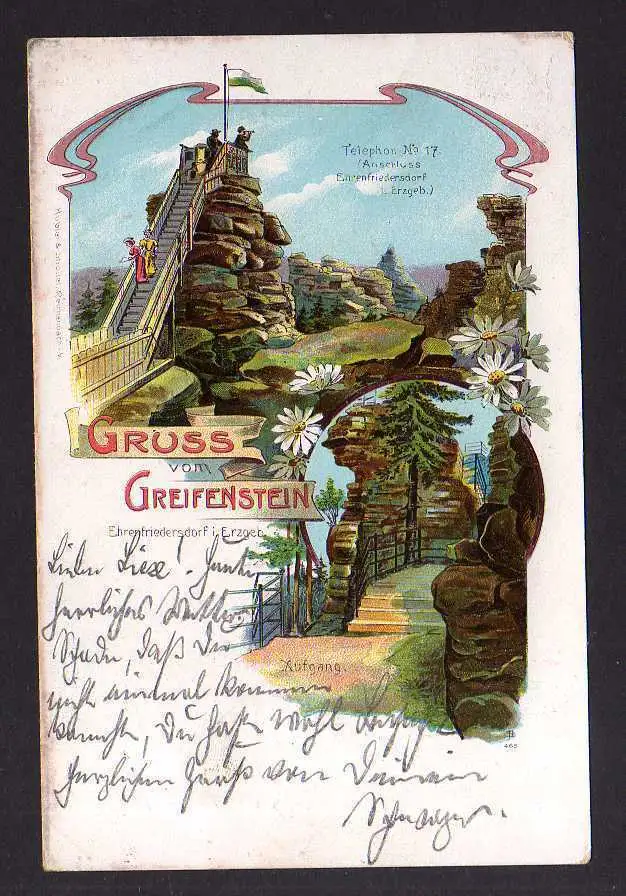 Telephon No 17.
(Anschluss
Ehrenfriedersdorf
i. Erzgeb.)
GRUSS
vom
GREIFENSTEIN
Ehrenfriedersdorf i. Erzgeb.
Aufgang.
468
Liebe Liese! Heute
herrliches Wetter
Schade, daß Du
nicht einmal kommen
konntest, Du hast wohl
herzlichen Gruß von Deinem
Schwager.